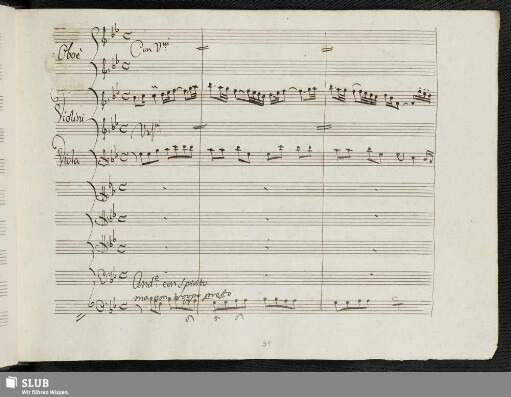 Oboè
Con Vni
Violini
Unis
Viola
And.e con spirito
ma non troppo presto
31
SLUB
Wir führen Wissen.